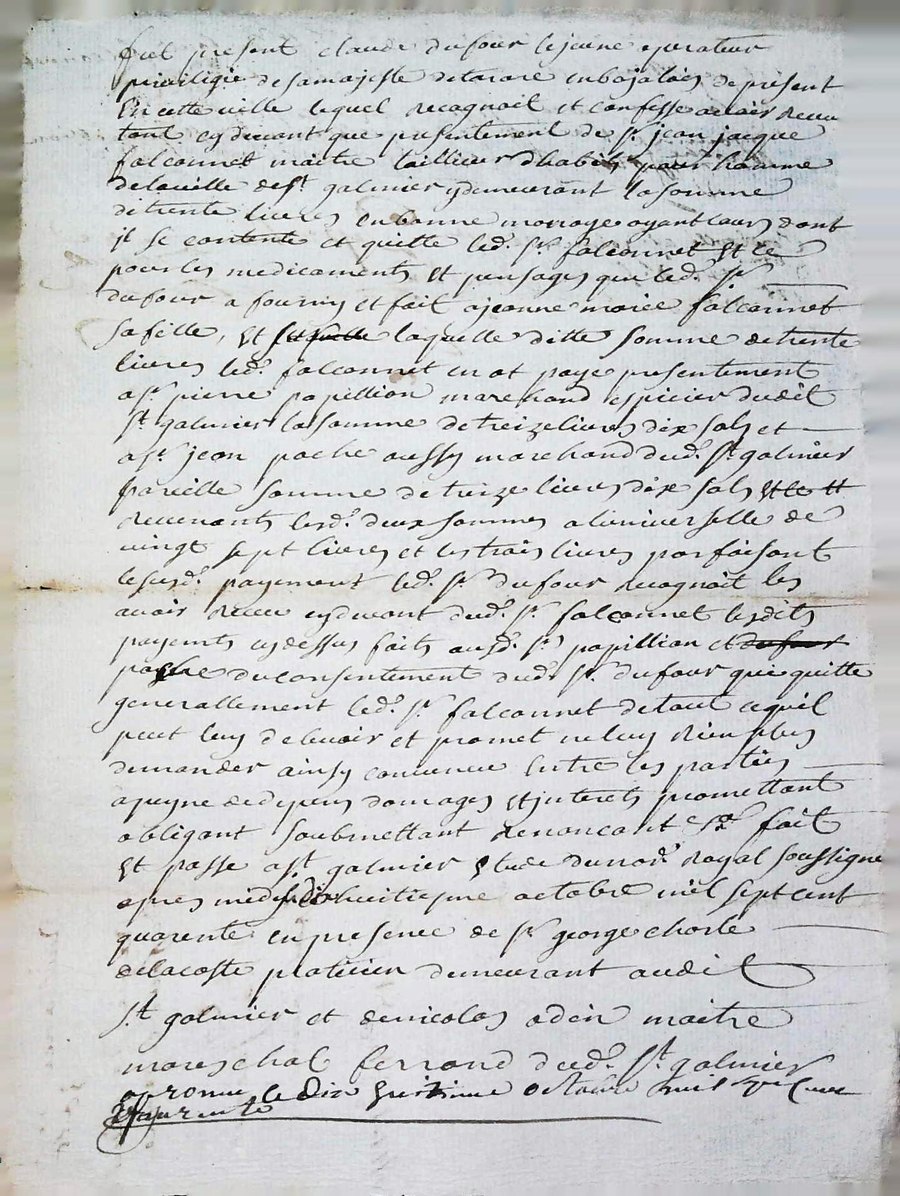 fut present claude dufour le jeune operateur
privilegie desamajeste detarare enbojalois depresent
En cette ville lequel recognoit et confesse avoir receu
tant cydevant que presentement de Sr. jean jacque
falconnet maitre taillieur dhabits pour homme
delaville de St galmier y demeurant la somme
de trente livres en bonne monoye ayant cours dont
jl se contente et quitte led. Sr. falconnet Et ce
pour les medicaments Et pensages que led. Sr
dufour a fourny et fait a jeanne marie falconnet
sa fille, Et laquelle ditte somme detrente
livres led. falconnet en at paye presentement
a Sr. pierre papillion marchand espicier dudit
St galmier la somme detreize livres dix sols et
a Sr. jean pache aussy marchand dud. St galmier
pareille somme de treize livres dix sols
Revenants lesd. deux sommes a luniverselle de
vingt sept livres et les trois livres parfaisant
lesusd. payement led. Sr. dufour recognoit les
avoir receu cydevant dud. Sr. falconnet lesdits
payements cydessus faits ausd. Srs papillian et dufour
pache du consentement dud. Sr. dufour qui quitte
generallement led. Sr. falconnet detout cequil
peut luy debvoir et promet neluy Rien plus
demander ainsy convenu Entre les parties
apeyne dedepens domages Et jnterets promettant
obligant soubmettant Renoncant &a fait
Et passe a St galmier Etude dunore. Royal soussigne
apres midy dixhuitieme octobre mil sept cent
quarente en presence de Sr. george charle
delacoste praticien demeurant audit
St galmier et denicolas odin maitre
mareschal ferrand dud. St galmier
le dix huitieme octobre mil sept cent
quarente